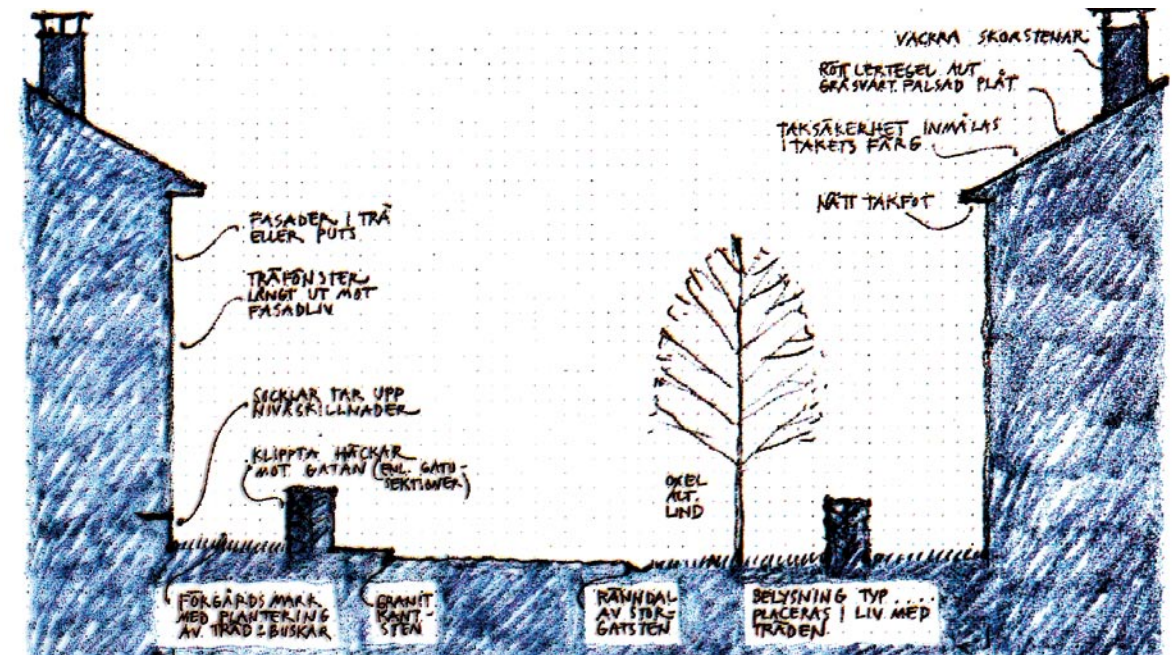 VACKRA SKORSTENAR
RÖTT LERTEGEL ALT
GRÅSVART FALSAD PLÅT
TAKSÄKERHET INMÅLAS
I TAKETS FÄRG
NÄTT TAKFOT
FASADER I TRÄ
ELLER PUTS
TRÄFÖNSTER
LÅNGT UT MOT
FASADLIV
SOCKLAR TAR UPP
NIVÅSKILLNADER
KLIPPTA HÄCKAR
MOT GATAN (ENL. GATU-
SEKTIONER)
OXEL
ALT.
LIND
FÖRGÅRDSMARK
MED PLANTERING
AV TRÄD & BUSKAR
GRANIT
KANT-
STEN
RÄNNDAL
AV STOR-
GATSTEN
BELYSNING TYP .....
PLACERAS I LIV MED
TRÄDEN.